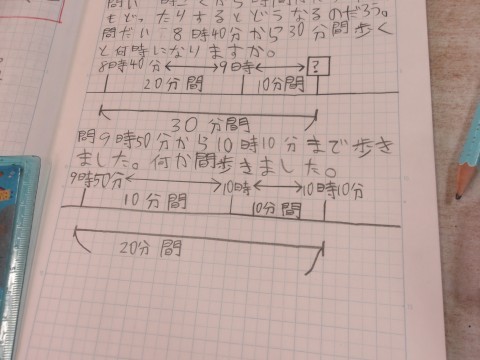 もどったりするとどうなるのだろう。
問だい 8時40分から30分間歩く
と何時になりますか。
8時40分 9時 ?
20分間 10分間
30分間
問9時50分から10時10分まで歩き
ました。何分間歩きました。
9時50分 10時 10時10分
10分間 10分間
20分間